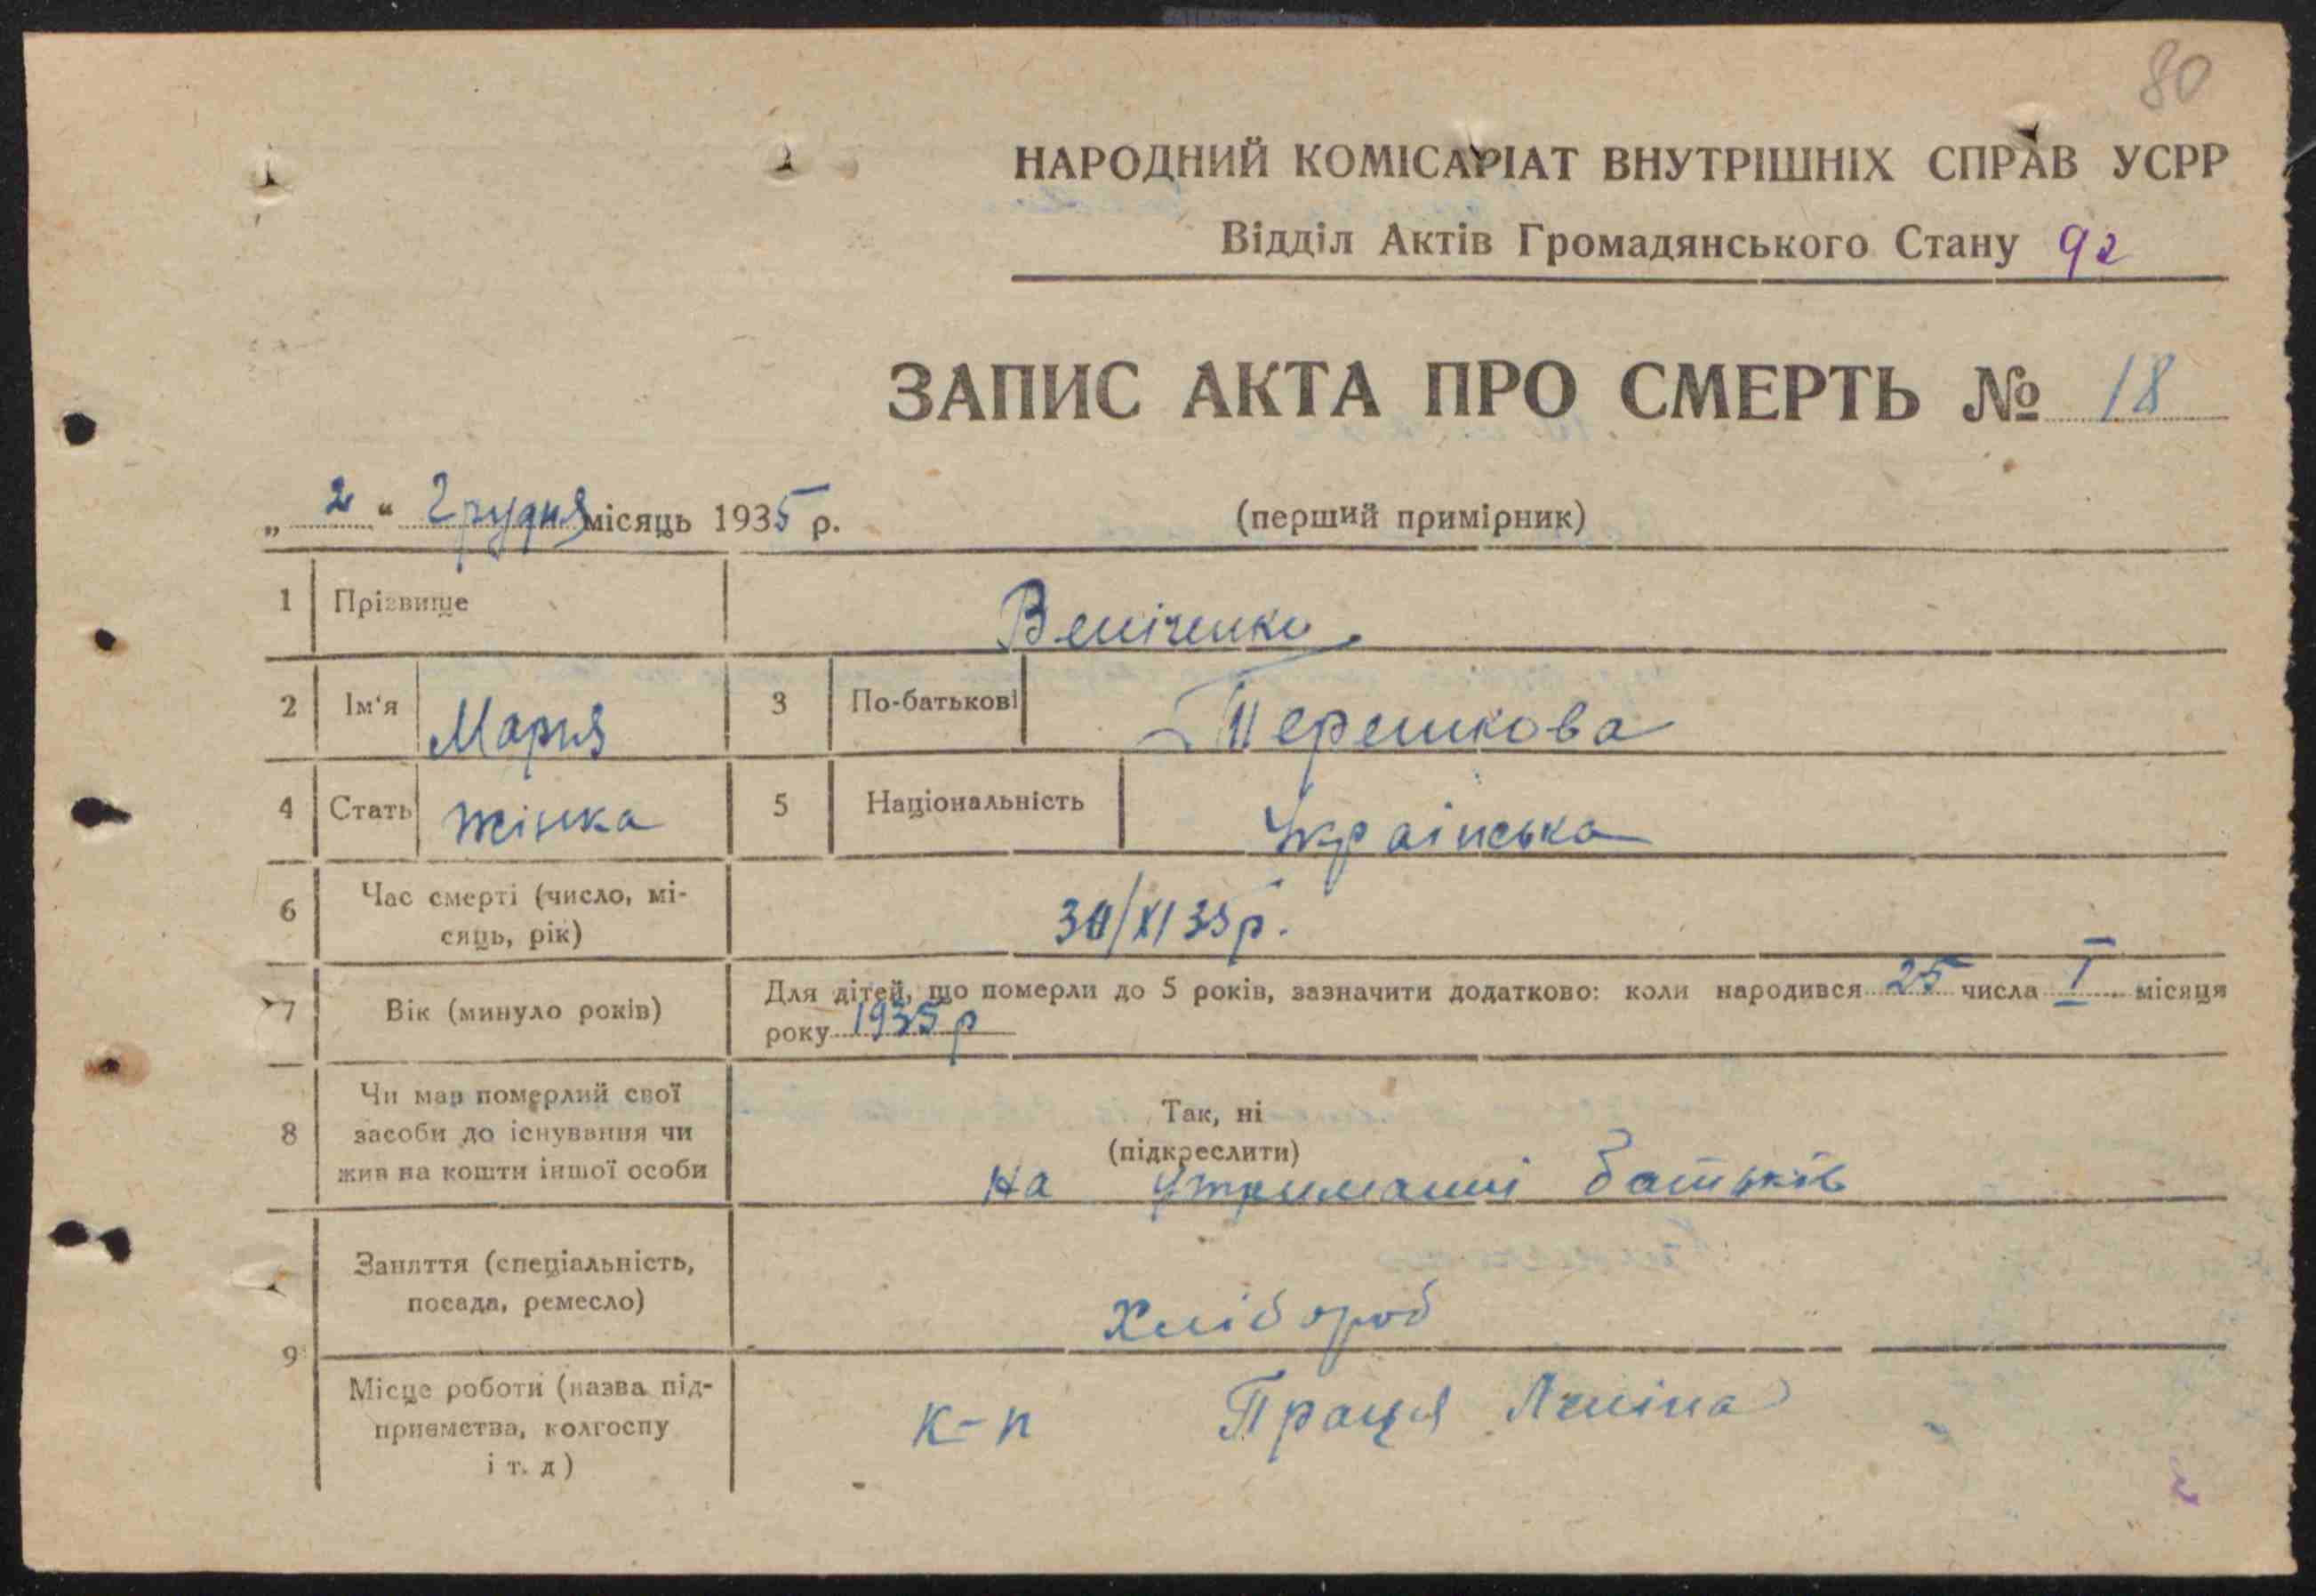 80
НАРОДНИЙ КОМІСАРІАТ ВНУТРІШНІХ СПРАВ УСРР
Відділ Актів Громадянського Стану 92
ЗАПИС АКТА ПРО СМЕРТЬ № 18
„ 2 “ Грудня місяць 1935 р.
(перший примірник)
1 Прізвище
2 Ім'я Мария 3 По-батькові
4 Стать жінка 5 Національність Українська
6 Час смерті (число, мі-
сяць, рік)
30/XI 35р.
7 Вік (минуло років) Для дітей, що померли до 5 років, зазначити додатково: коли народився 25 числа I місяця
року 1935 р
8 Чи мав померлий свої
засоби до існування чи
жив на кошти іншої особи
Так, ні
(підкреслити)
на утриманні батьків
9 Заняття (спеціальність,
посада, ремесло)
Хлібороб
Місце роботи (назва під-
приємства, колгоспу
і т. д)
к-п Праця Леніна